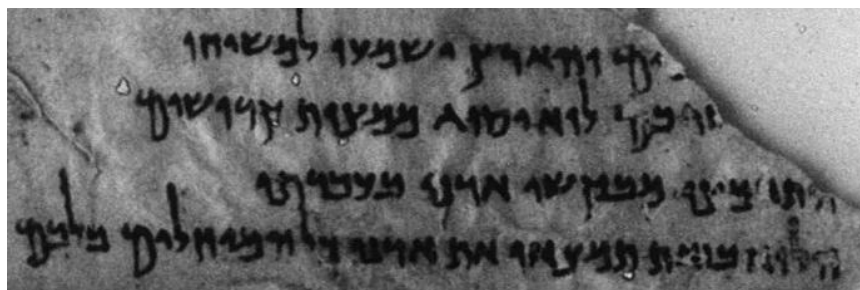 מים והארץ ישמעו למשיחו
שר בם לוא יסוג ממצות קדושים
התאמצו מבקשי אדני בעבדתו
הלוא בזאת תמצאו את אדני כל המיחלים בלבם